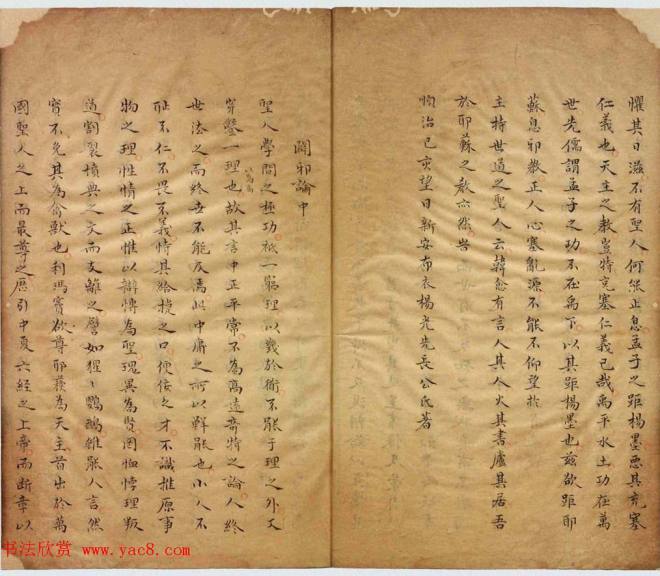 懼其日滋不有聖人何能止息孟子之距楊墨惡其充塞
仁義也天主之教豈特充塞仁義已哉禹平水土功在萬
世先儒謂孟子之功不在禹下以其距楊墨也茲欲距耶
蘇息邪教正人心塞亂源不能不仰望於
主持世道之聖人云韓愈有言人其人火其書廬其居吾
於耶蘇之教亦然告
順治己亥望日新安布衣楊光先長公氏著
闢邪論中
聖人學問之極功祇一窮理以幾於術不能于理之外又
穿鑿一理也故其言中正平常不為高遠奇特之論人終
世法之而終世不能及焉此中庸之所以鮮能也小人不
恥不仁不畏不義恃其給捷之口便佞之才不識推原事
物之理性情之正惟以辯博為聖瑰異為賢罔恤悖理叛
道割裂墳典之文而支離之譬如猩猩鸚鵡雖能人言然
實不免其為禽獸也利瑪竇欲尊耶穌為天主首出於萬
國聖人之上而最尊之歷引中夏六經之上帝而斷章以
书法欣赏 www.yac8.com